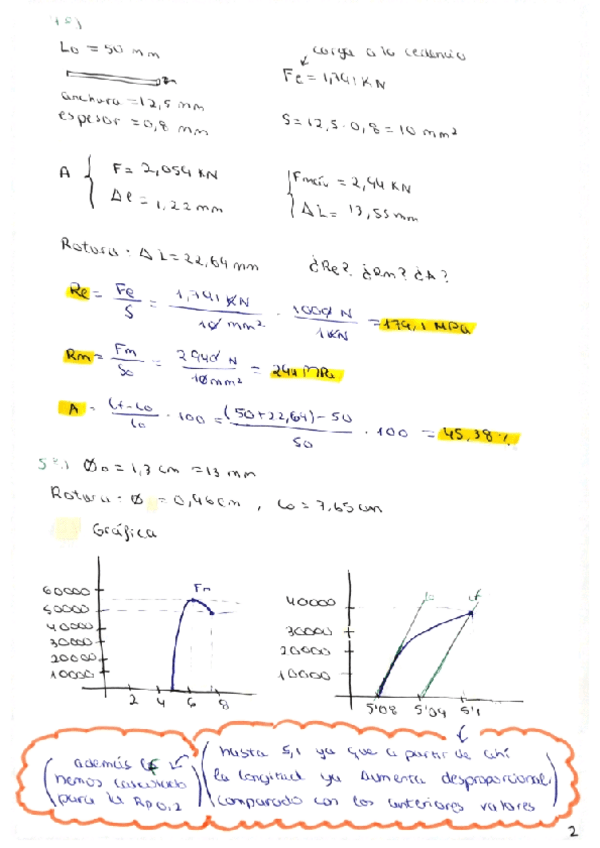 L₀ = 50 mm
carga a la cedencia
Fe = 1,741 KN
anchura = 12,5 mm
espesor = 0,8 mm
S = 12,5 · 0,8 = 10 mm²
A { F = 2,054 KN
Δl = 1,22 mm
Fmáx = 2,44 KN
ΔL = 13,55 mm
Rotura: ΔL = 22,64 mm
¿Re? ¿Rm? ¿A?
Re = Fe / S = 1,741 KN / 10 mm² · 1000 N / 1 KN = 174,1 MPa
Rm = Fm / S₀ = 2440 N / 10 mm² = 244 MPa
A = Lf-L₀ / L₀ · 100 = (50+22,64) - 50 / 50 · 100 = 45,38 %
5º) Ø₀ = 1,3 cm = 13 mm
Rotura: Ø = 0,46 cm, L₀ = 7,65 cm
Gráfica
Fm
60000
50000
40000
30000
20000
10000
2 4 6 8
40000
30000
20000
10000
5'08 5'09 5'1
(además Lf
hemos calculado
para la Rp 0,2)
(hasta 5,1 ya que a partir de ahí
la longitud ya aumenta desproporcional.
comparado con los anteriores valores)
2